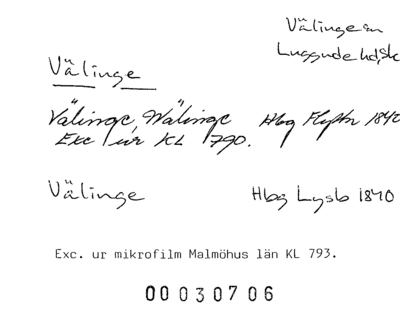 Välinge sn
Luggude hd, Sk
Välinge
Välinge, Wälinge Hbg Flyttn 1840
Exc ur KL 790.
Välinge Hbg Lysb 1840
Exc. ur mikrofilm Malmöhus län KL 793.
00 030706